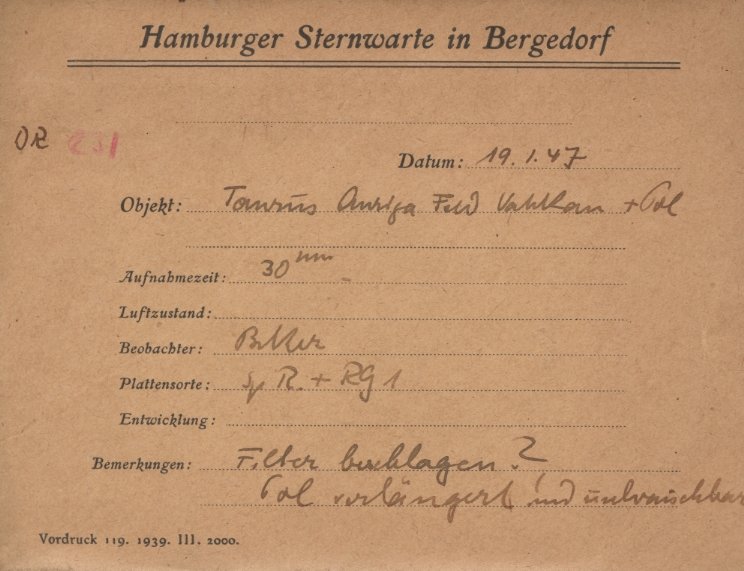 Hamburger Sternwarte in Bergedorf
OR 231
Datum: 19.1.47
Objekt: Taurus Auriga Feld + Pol
Aufnahmezeit: 30 min
Luftzustand:
Beobachter:
Plattensorte: R. + RG 1
Entwicklung:
Bemerkungen: Filter beschlagen?
Pol verlängert und unbrauchbar
Vordruck 119. 1939. III. 2000.